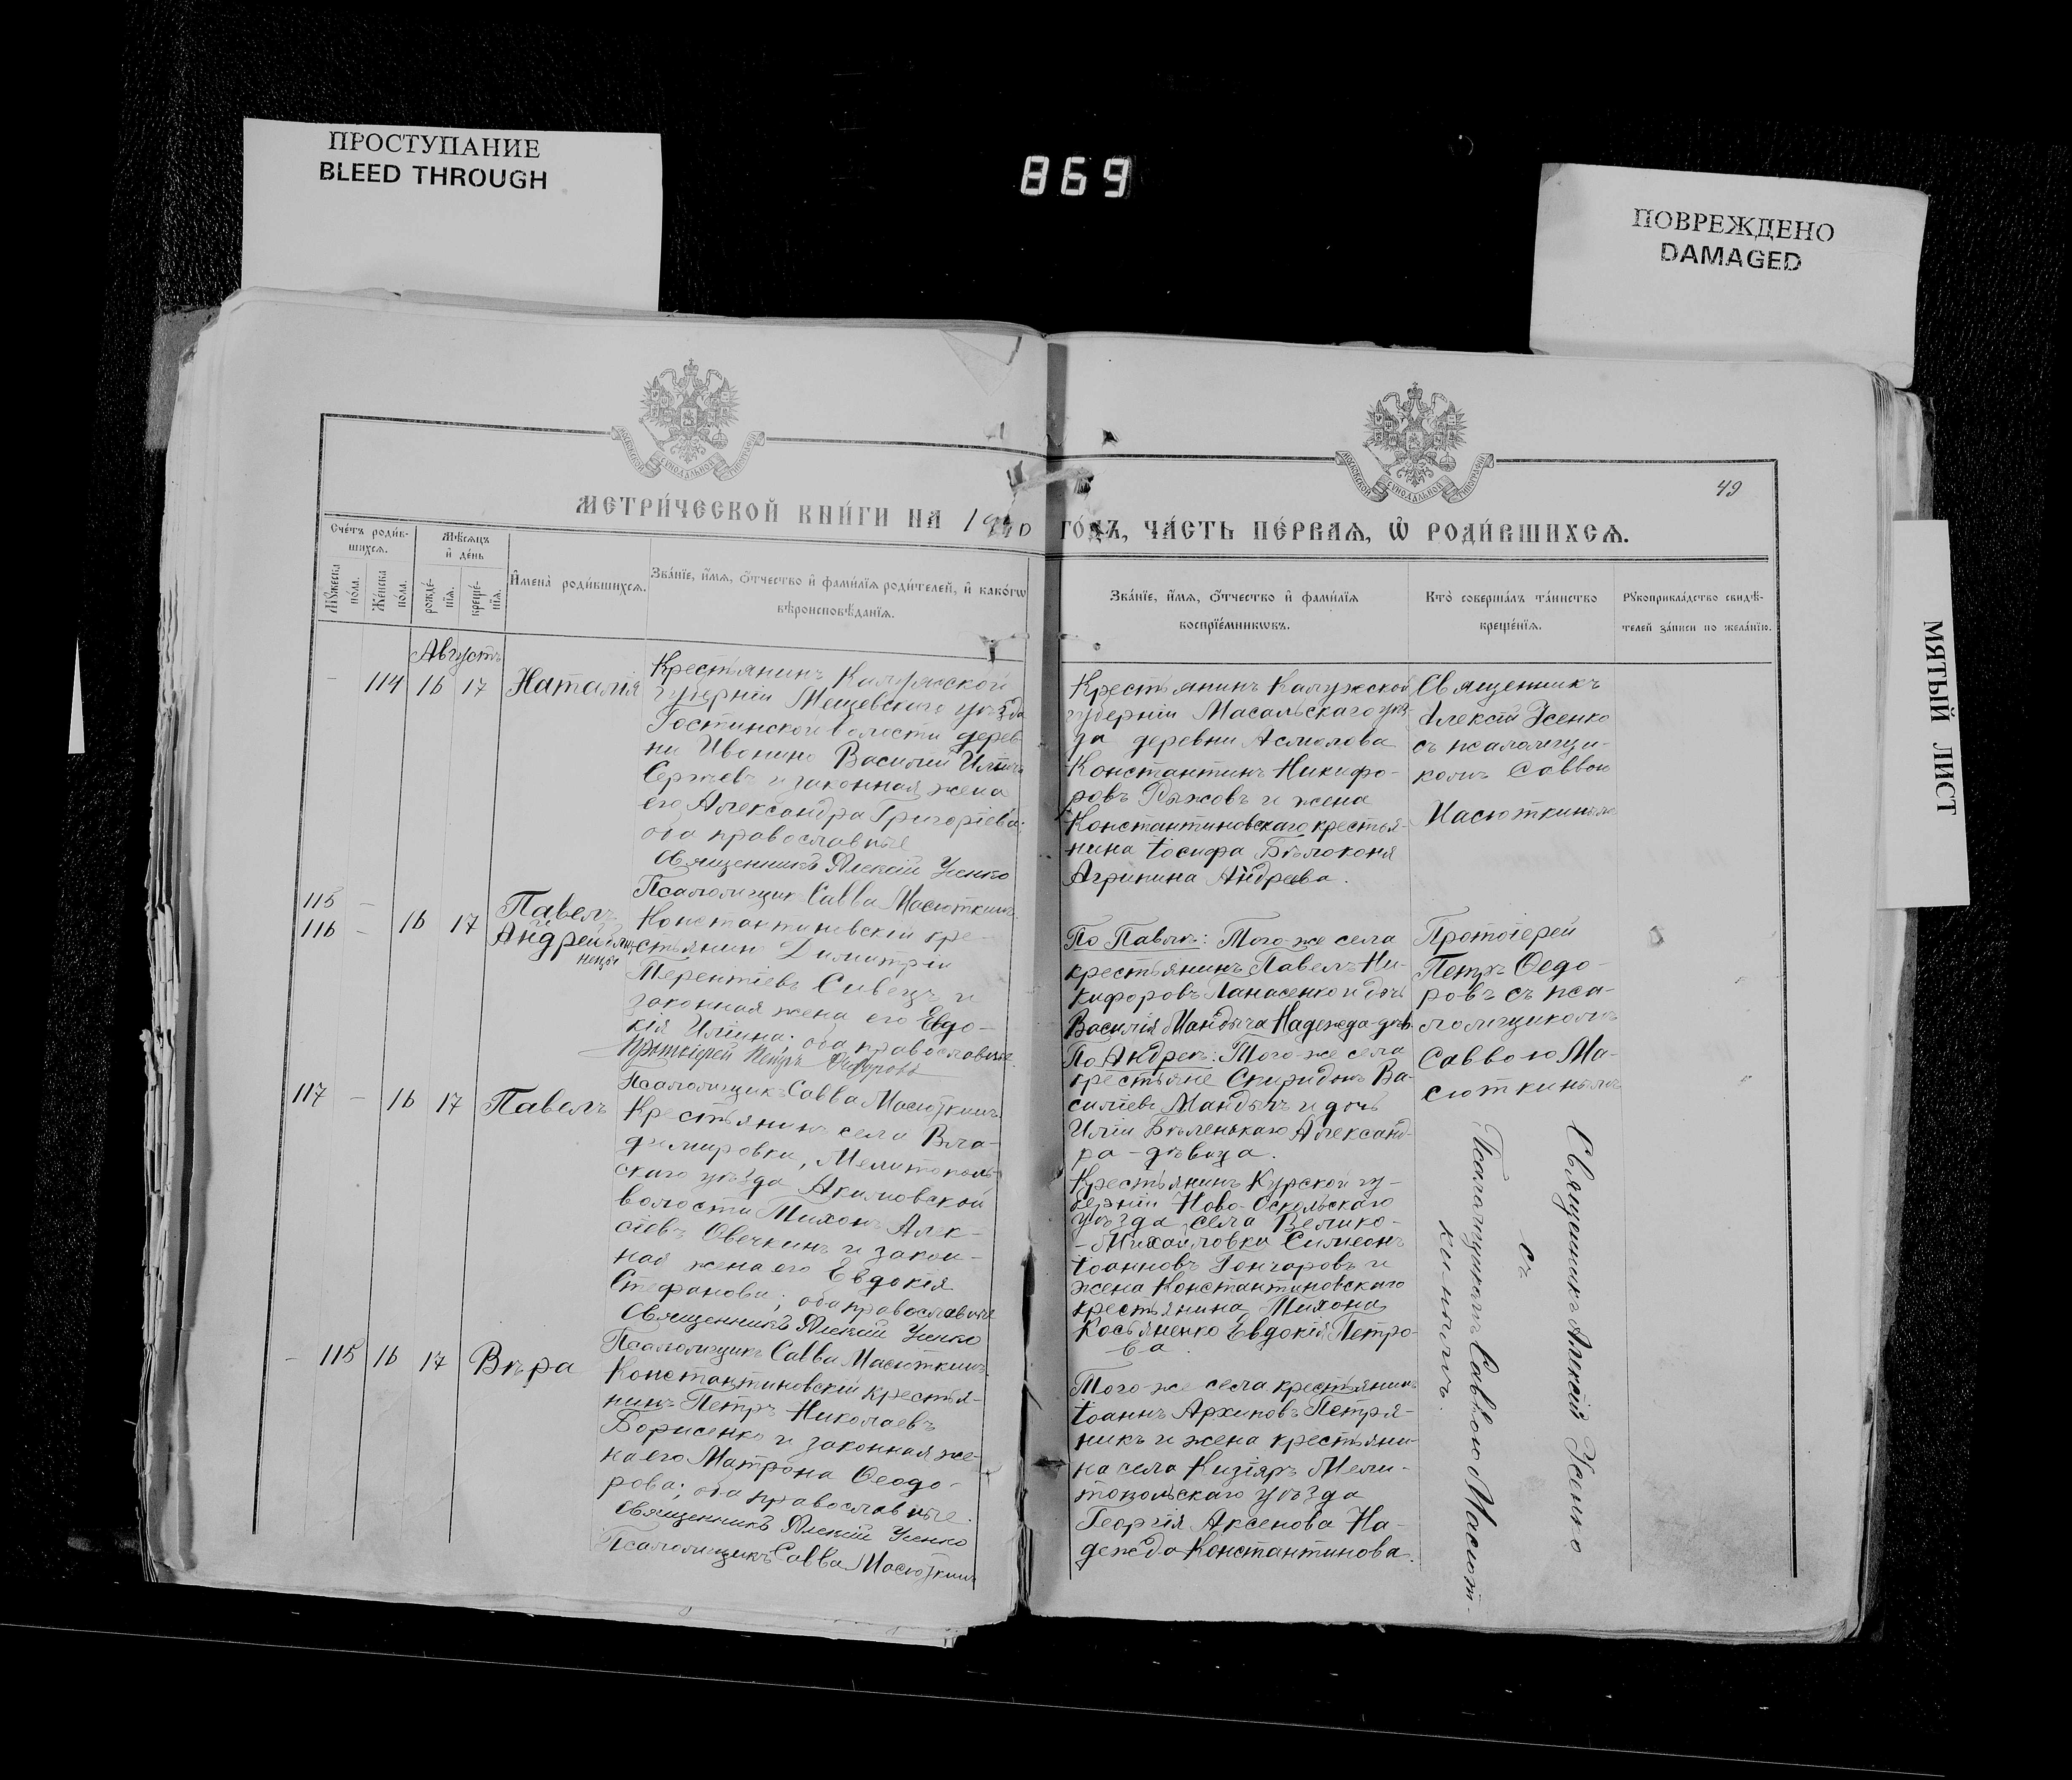 ПРОСТУПАНИЕ
BLEED THROUGH
869
ПОВРЕЖДЕНО
DAMAGED
МЯТЫЙ ЛИСТ
49
МОСКОВСКОЙ СУНОДАЛЬНОЙ ТИПОГРАФІИ
МОСКОВСКОЙ СУНОДАЛЬНОЙ ТИПОГРАФІИ
МЕТРИ́ЧЕСКОЙ КНИ́ГИ НА 1910 ГО́ДЪ, ЧА́СТЬ ПЕ́РВАѦ, Ѡ҆ РОДИ́ВШИХСѦ.
Сче́тъ роди́в-
шихсѧ.
Мꙋ́жеска
по́ла.
Же́нска
по́ла.
Мѣ́сѧцъ
и҆ де́нь
рожде́-
нїѧ.
креще́-
нїѧ.
И҆мена̀ роди́вшихсѧ.
Зва́нїе, и҆́мѧ, ѻ҆́тчество и҆ фами́лїѧ роди́телей, и҆ како́гѡ
вѣроисповѣ́данїѧ.
Зва́нїе, и҆́мѧ, ѻ҆́тчество и҆ фами́лїѧ
воспрїе́мникѡвъ.
Кто̀ соверша́лъ та́инство
креще́нїѧ.
Рꙋкоприкла́дство свидѣ́-
телей за́писи по жела́нїю.
Августъ
- 114 16 17 Наталія
Крестьянинъ Калужской
губерніи Мещевского уѣзда
Гостинской волости дерев-
ни Ивонино Василій
Сергѣевъ и законная жена
его Александра Григоріева;
оба православные
Священникъ Алексій Усенко
Псаломщикъ Савва Масюткинъ
Крестьянинъ Калужской
губерніи Масальскаго уѣз-
да деревни Асмолова
Константинъ Никифо-
ровъ Рыжовъ и жена
Константиновскаго крестья-
нина Іосифа Бѣлоконя
Агрипина Андреева.
Священникъ
Алексій Усенко
съ псаломщи-
комъ Саввою
Масюткинымъ
115 -
116 - 16 17 Павелъ
Андрей близ-
нецы
Константиновскій кре-
стьянинъ Димитрій
Терентіевъ Сивецъ и
законная жена его Евдо-
кія Иліина; оба православные.
Протоіерей Петръ Ѳедоровъ
Псаломщикъ Савва Масюткинъ
По Павлѣ: Того-же села
крестьянинъ Павелъ Ни-
кифоровъ Панасенко и дочь
Василія Мандыча Надежда-дѣв.
По Андреѣ: Того-же села
крестьяне Спиридонъ Ва-
силіевъ Мандычъ и дочь
Иліи Бѣленькаго Александ-
ра - дѣвица.
Протоіерей
Петръ Ѳедо-
ровъ съ пса-
ломщикомъ
Саввою Ма-
сюткинымъ
117 - 16 17 Павелъ
Крестьянинъ села Вла-
димировки, Мелитополь-
скаго уѣзда Акимовской
волости Тихонъ Алек-
сіевъ Овечкинъ и закон-
ная жена его Евдокія
Стефанова; оба православные
Священникъ Алексій Усенко
Псаломщикъ Савва Масюткинъ
Крестьянинъ Курской гу-
берніи Ново-Оскольскаго
уѣзда села Велико-
-Михайловки Симеонъ
Іоанновъ Гончаровъ и
жена Константиновскаго
крестьянина Тихона
Косьяненко Евдокія Петро-
ва.
Священникъ Алексій Усенко
съ
Псаломщикомъ Саввою Масют-
кинымъ.
- 115 16 17 Вѣра
Константиновскій крестья-
нинъ Петръ Николаевъ
Борисенко и законная же-
на его Матрона Ѳеодо-
рова; оба православные.
Священникъ Алексій Усенко
Псаломщикъ Савва Масюткинъ
Того-же села крестьянинъ
Іоаннъ Архиповъ Петря-
никъ и жена крестьяни-
на села Кизіяръ Мели-
топольскаго уѣзда
Георгія Аксенова На-
дежда Константинова.